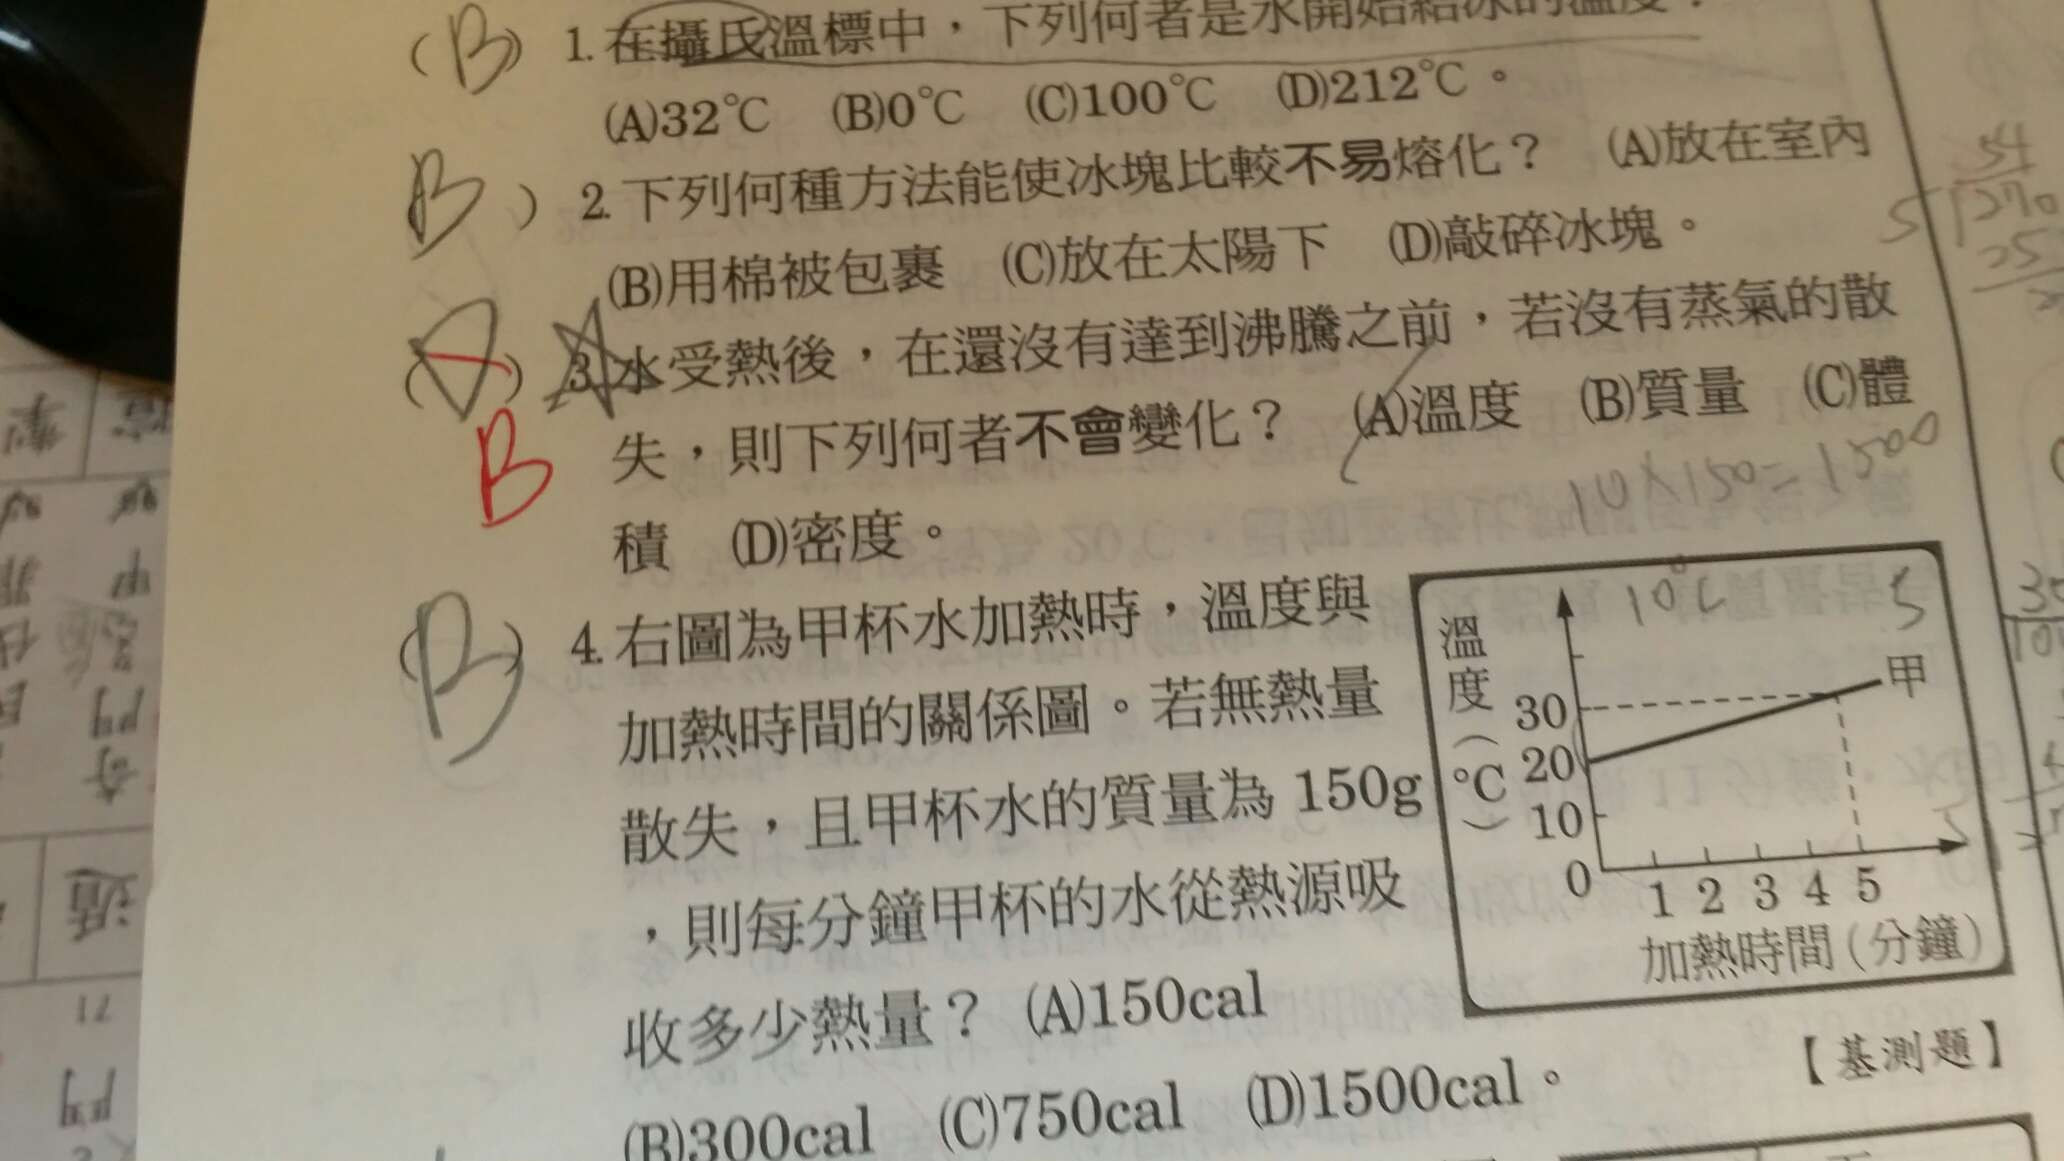 (B) 1.在攝氏溫標中，下列何者是水開始結冰的溫度？
(A)32℃ (B)0℃ (C)100℃ (D)212℃。
B ) 2.下列何種方法能使冰塊比較不易熔化？ (A)放在室內
(B)用棉被包裹 (C)放在太陽下 (D)敲碎冰塊。
( ) 3.水受熱後，在還沒有達到沸騰之前，若沒有蒸氣的散
B
失，則下列何者不會變化？ (A)溫度 (B)質量 (C)體
積 (D)密度。
10×150=1500
(B) 4.右圖為甲杯水加熱時，溫度與
加熱時間的關係圖。若無熱量
散失，且甲杯水的質量為 150g
，則每分鐘甲杯的水從熱源吸
收多少熱量？ (A)150cal
(B)300cal (C)750cal (D)1500cal。
【基測題】
溫度(℃)
10℃ 5
甲
30
20
10
0
1 2 3 4 5
加熱時間(分鐘)
54
5 270
25
遁
17
門
奇
門
甲